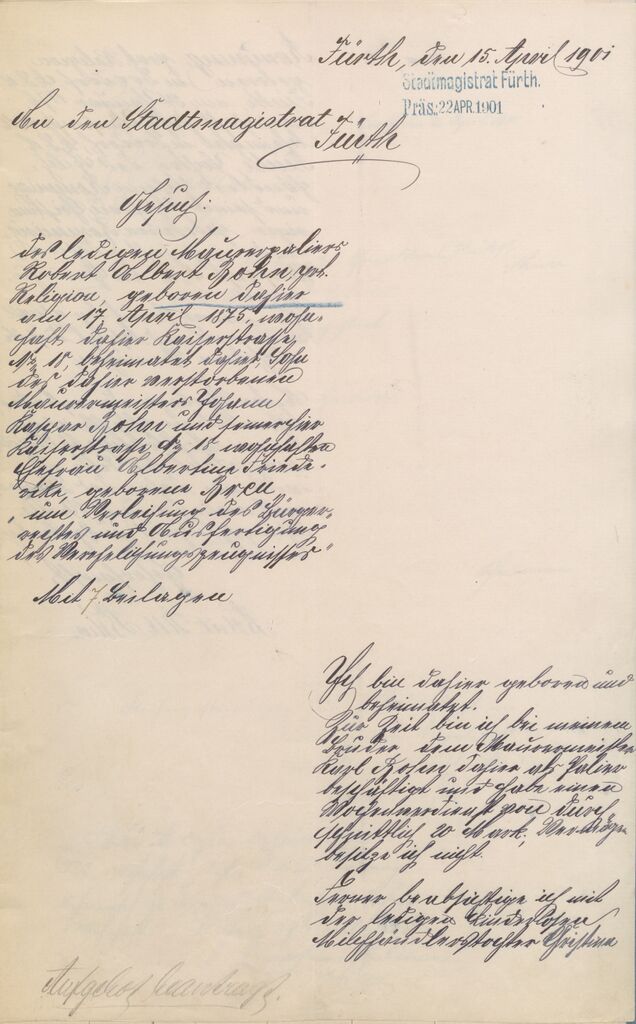 Fürth, den 15. April 1901
Stadtmagistrat Fürth.
Präs.: 22 APR. 1901
An den Stadtmagistrat
Fürth
Gesuch:
des ledigen Maurerpaliers
Robert Albert Bohn, prot.
Religion, geboren dahier
am 17. April 1875, wohn-
haft dahier Kaiserstrasse,
No 15, beheimatet dahier, Sohn
des dahier verstorbenen
Maurermeisters Johann
Kaspar Bohn und seiner hier
Kaiserstrasse No 15 wohnhaften
Ehefrau Albertine Friede-
rike, geborene
„um Verleihung des Bürger-
rechtes und Ausfertigung
des Verehelichungszeugnisses"
Mit 7 Beilagen
Ich bin dahier geboren und
beheimatet.
Zur Zeit bin ich bei meinem
Bruder, dem Maurermeister
Karl Bohn dahier als Palier
beschäftigt und habe einen
Wochenverdienst von durch
schnittlich 20 Mark; Vermögen
besitze ich nicht.
Ferner beabsichtige ich mit
der ledigen kinderlosen
Milchhändlerstochter Christina
Aufgebot beantragt.